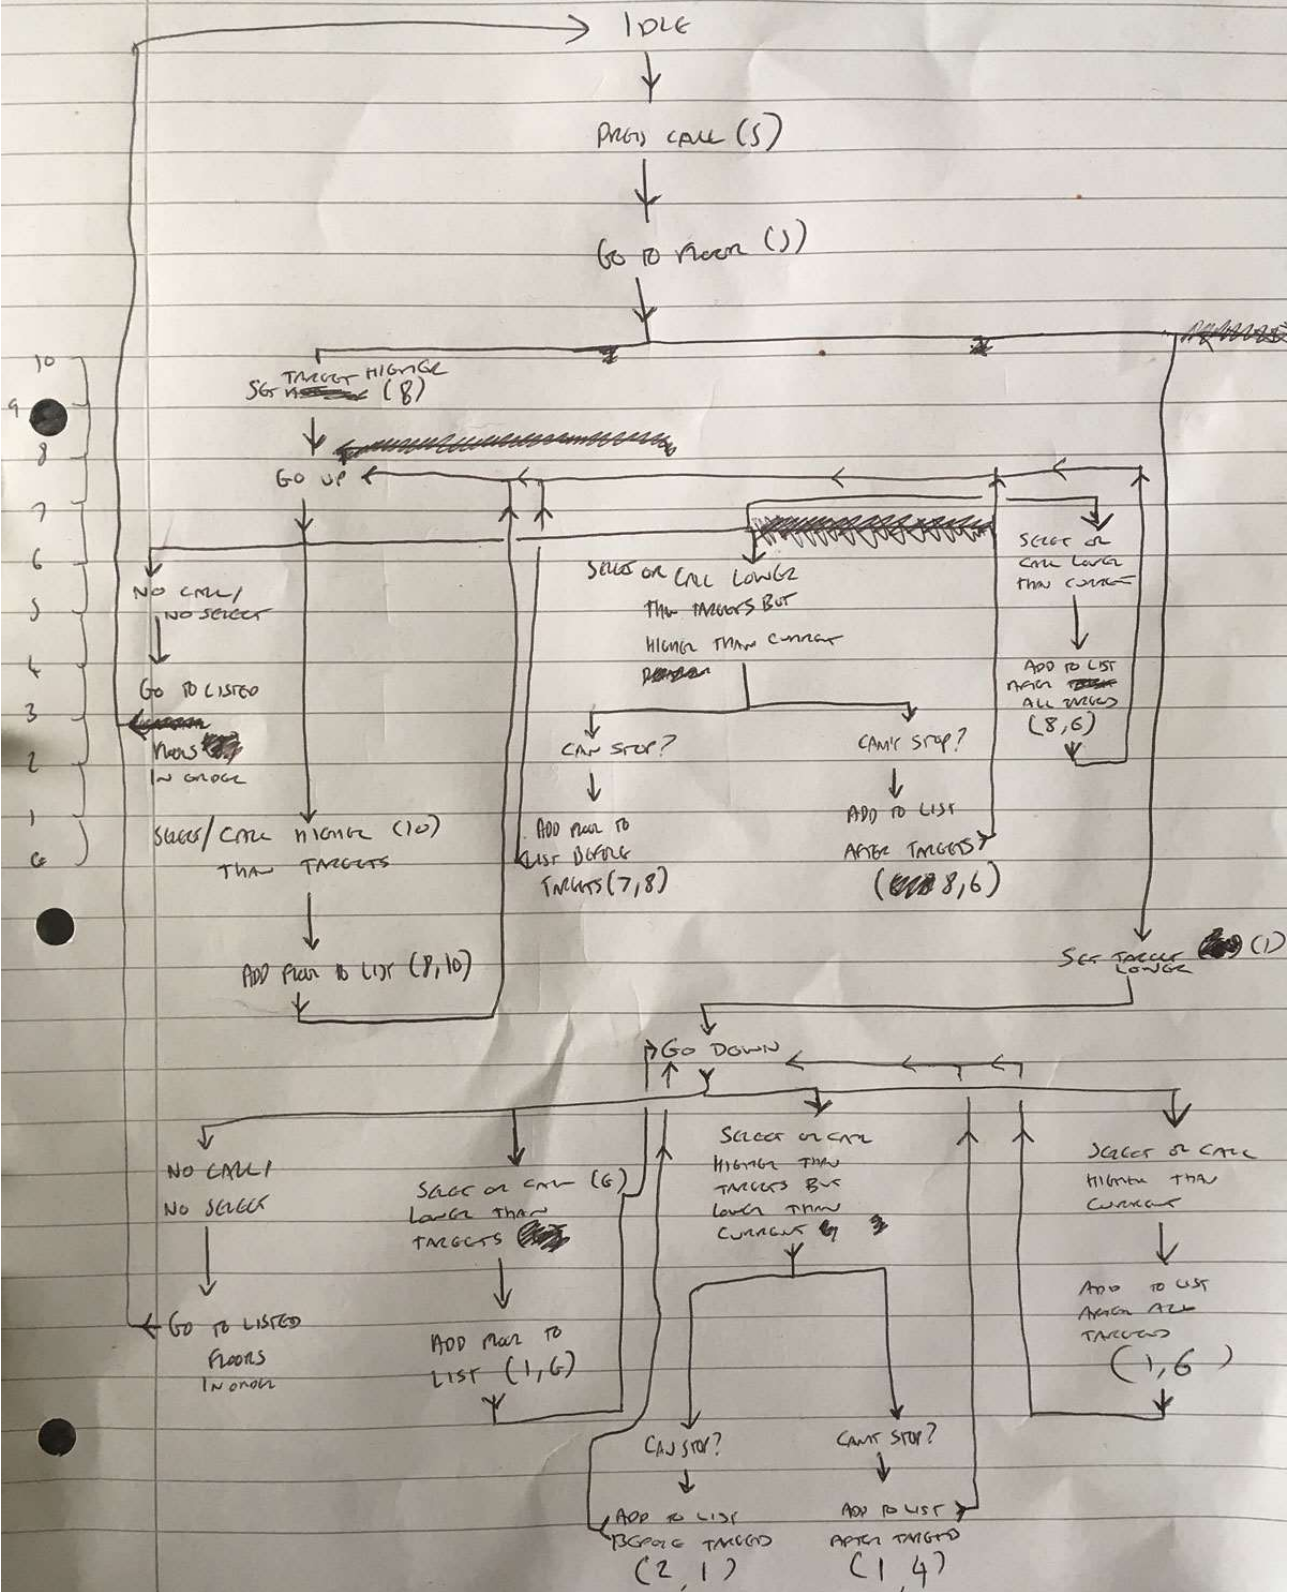 IDLE
PRESS CALL (5)
GO TO FLOOR (5)
10
9
8
7
6
5
4
3
2
1
G
TARGET HIGHER
SET (8)
GO UP
NO CALL/
NO SELECT
GO TO LISTED
FLOORS
IN ORDER
SELECT/CALL HIGHER (10)
THAN TARGETS
ADD FLOOR TO LIST (8,10)
SELECT OR CALL LOWER
THAN TARGETS BUT
HIGHER THAN CURRENT
CAN STOP?
ADD FLOOR TO
LIST BEFORE
TARGETS (7,8)
CAN'T STOP?
ADD TO LIST
AFTER TARGETS
(8,6)
SELECT OR
CALL LOWER
THAN CURRENT
ADD TO LIST
AFTER
ALL TARGETS
(8,6)
SET TARGET (1)
LOWER
GO DOWN
NO CALL/
NO SELECT
GO TO LISTED
FLOORS
IN ORDER
SELECT OR CALL (G)
LOWER THAN
TARGETS
ADD FLOOR TO
LIST (1,G)
SELECT OR CALL
HIGHER THAN
TARGETS BUT
LOWER THAN
CURRENT
CAN STOP?
ADD TO LIST
BEFORE TARGETS
(2,1)
CAN'T STOP?
ADD TO LIST
AFTER TARGETS
(1,4)
SELECT OR CALL
HIGHER THAN
CURRENT
ADD TO LIST
AFTER ALL
TARGETS
(1,6)